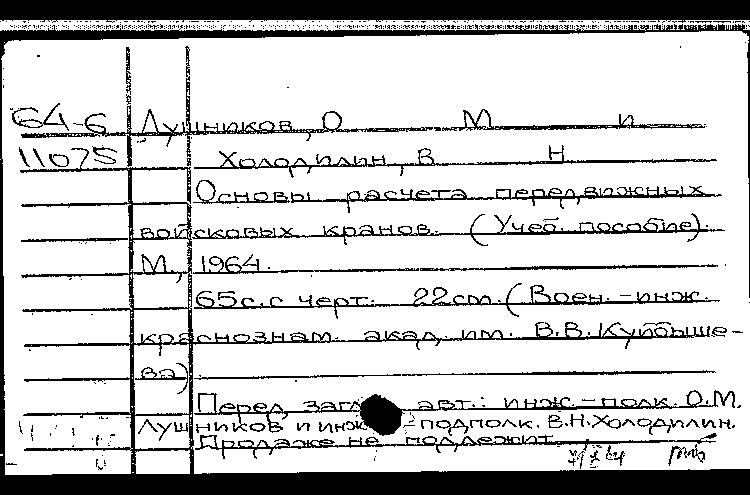 64-6 Лушников, О М и
11075 Холодилин, В Н
Основы расчета передвижных
войсковых кранов. (Учеб. пособие).
М., 1964.
65с. с черт. 22см. (Воен.-инж.
краснознам. акад. им. В.В. Куйбыше-
ва)
Перед загл. авт.: инж.-полк. О.М.
Лушников и инж. подполк. В.Н. Холодилин.
Продаже не подлежит